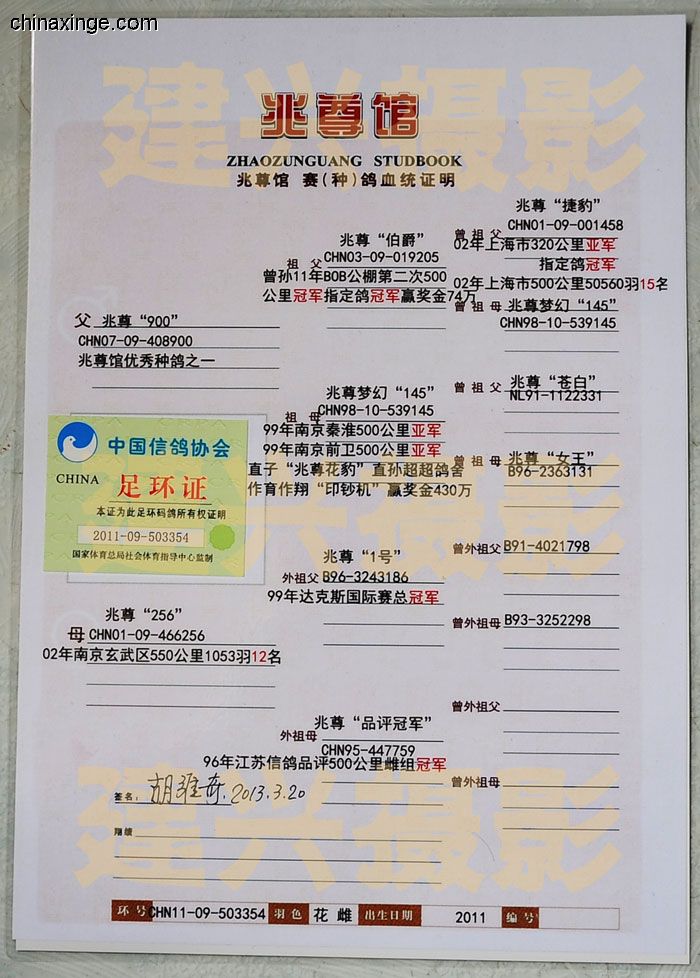 chinaxinge.com
建兴摄影
兆尊馆
ZHAOZUNGUANG STUDBOOK
兆尊馆 赛(种)鸽血统证明
兆尊“捷豹”
曾祖父 CHN01-09-001458
02年上海市320公里亚军
指定鸽冠军
02年上海市500公里50560羽15名
兆尊“伯爵”
祖父 CHN03-09-019205
曾孙11年BOB公棚第二次500
公里冠军指定鸽冠军赢奖金74万
曾祖母 兆尊梦幻“145”
CHN98-10-539145
父 兆尊“900”
CHN07-09-408900
兆尊馆优秀种鸽之一
兆尊梦幻“145”
祖母 CHN98-10-539145
99年南京秦淮500公里亚军
99年南京前卫500公里亚军
直子“兆尊花豹”直孙超超鸽舍
作育作翔“印钞机”赢奖金430万
曾祖父 兆尊“苍白”
NL91-1122331
曾祖母 兆尊“女王”
B96-2363131
中国信鸽协会
CHINA 足环证
本证为此足环码鸽所有权证明
2011-09-503354
国家体育总局社会体育指导中心监制
建兴摄影
兆尊“1号”
外祖父 B96-3243186
99年达克斯国际赛总冠军
曾外祖父 B91-4021798
曾外祖母 B93-3252298
兆尊“256”
母 CHN01-09-466256
02年南京玄武区550公里1053羽12名
兆尊“品评冠军”
外祖母 CHN95-447759
96年江苏信鸽品评500公里雌组冠军
曾外祖父
曾外祖母
签名: 胡雅奇.2013.3.20
翔绩
建兴摄影
环号 CHN11-09-503354 羽色 花 雌 出生日期 2011 编号